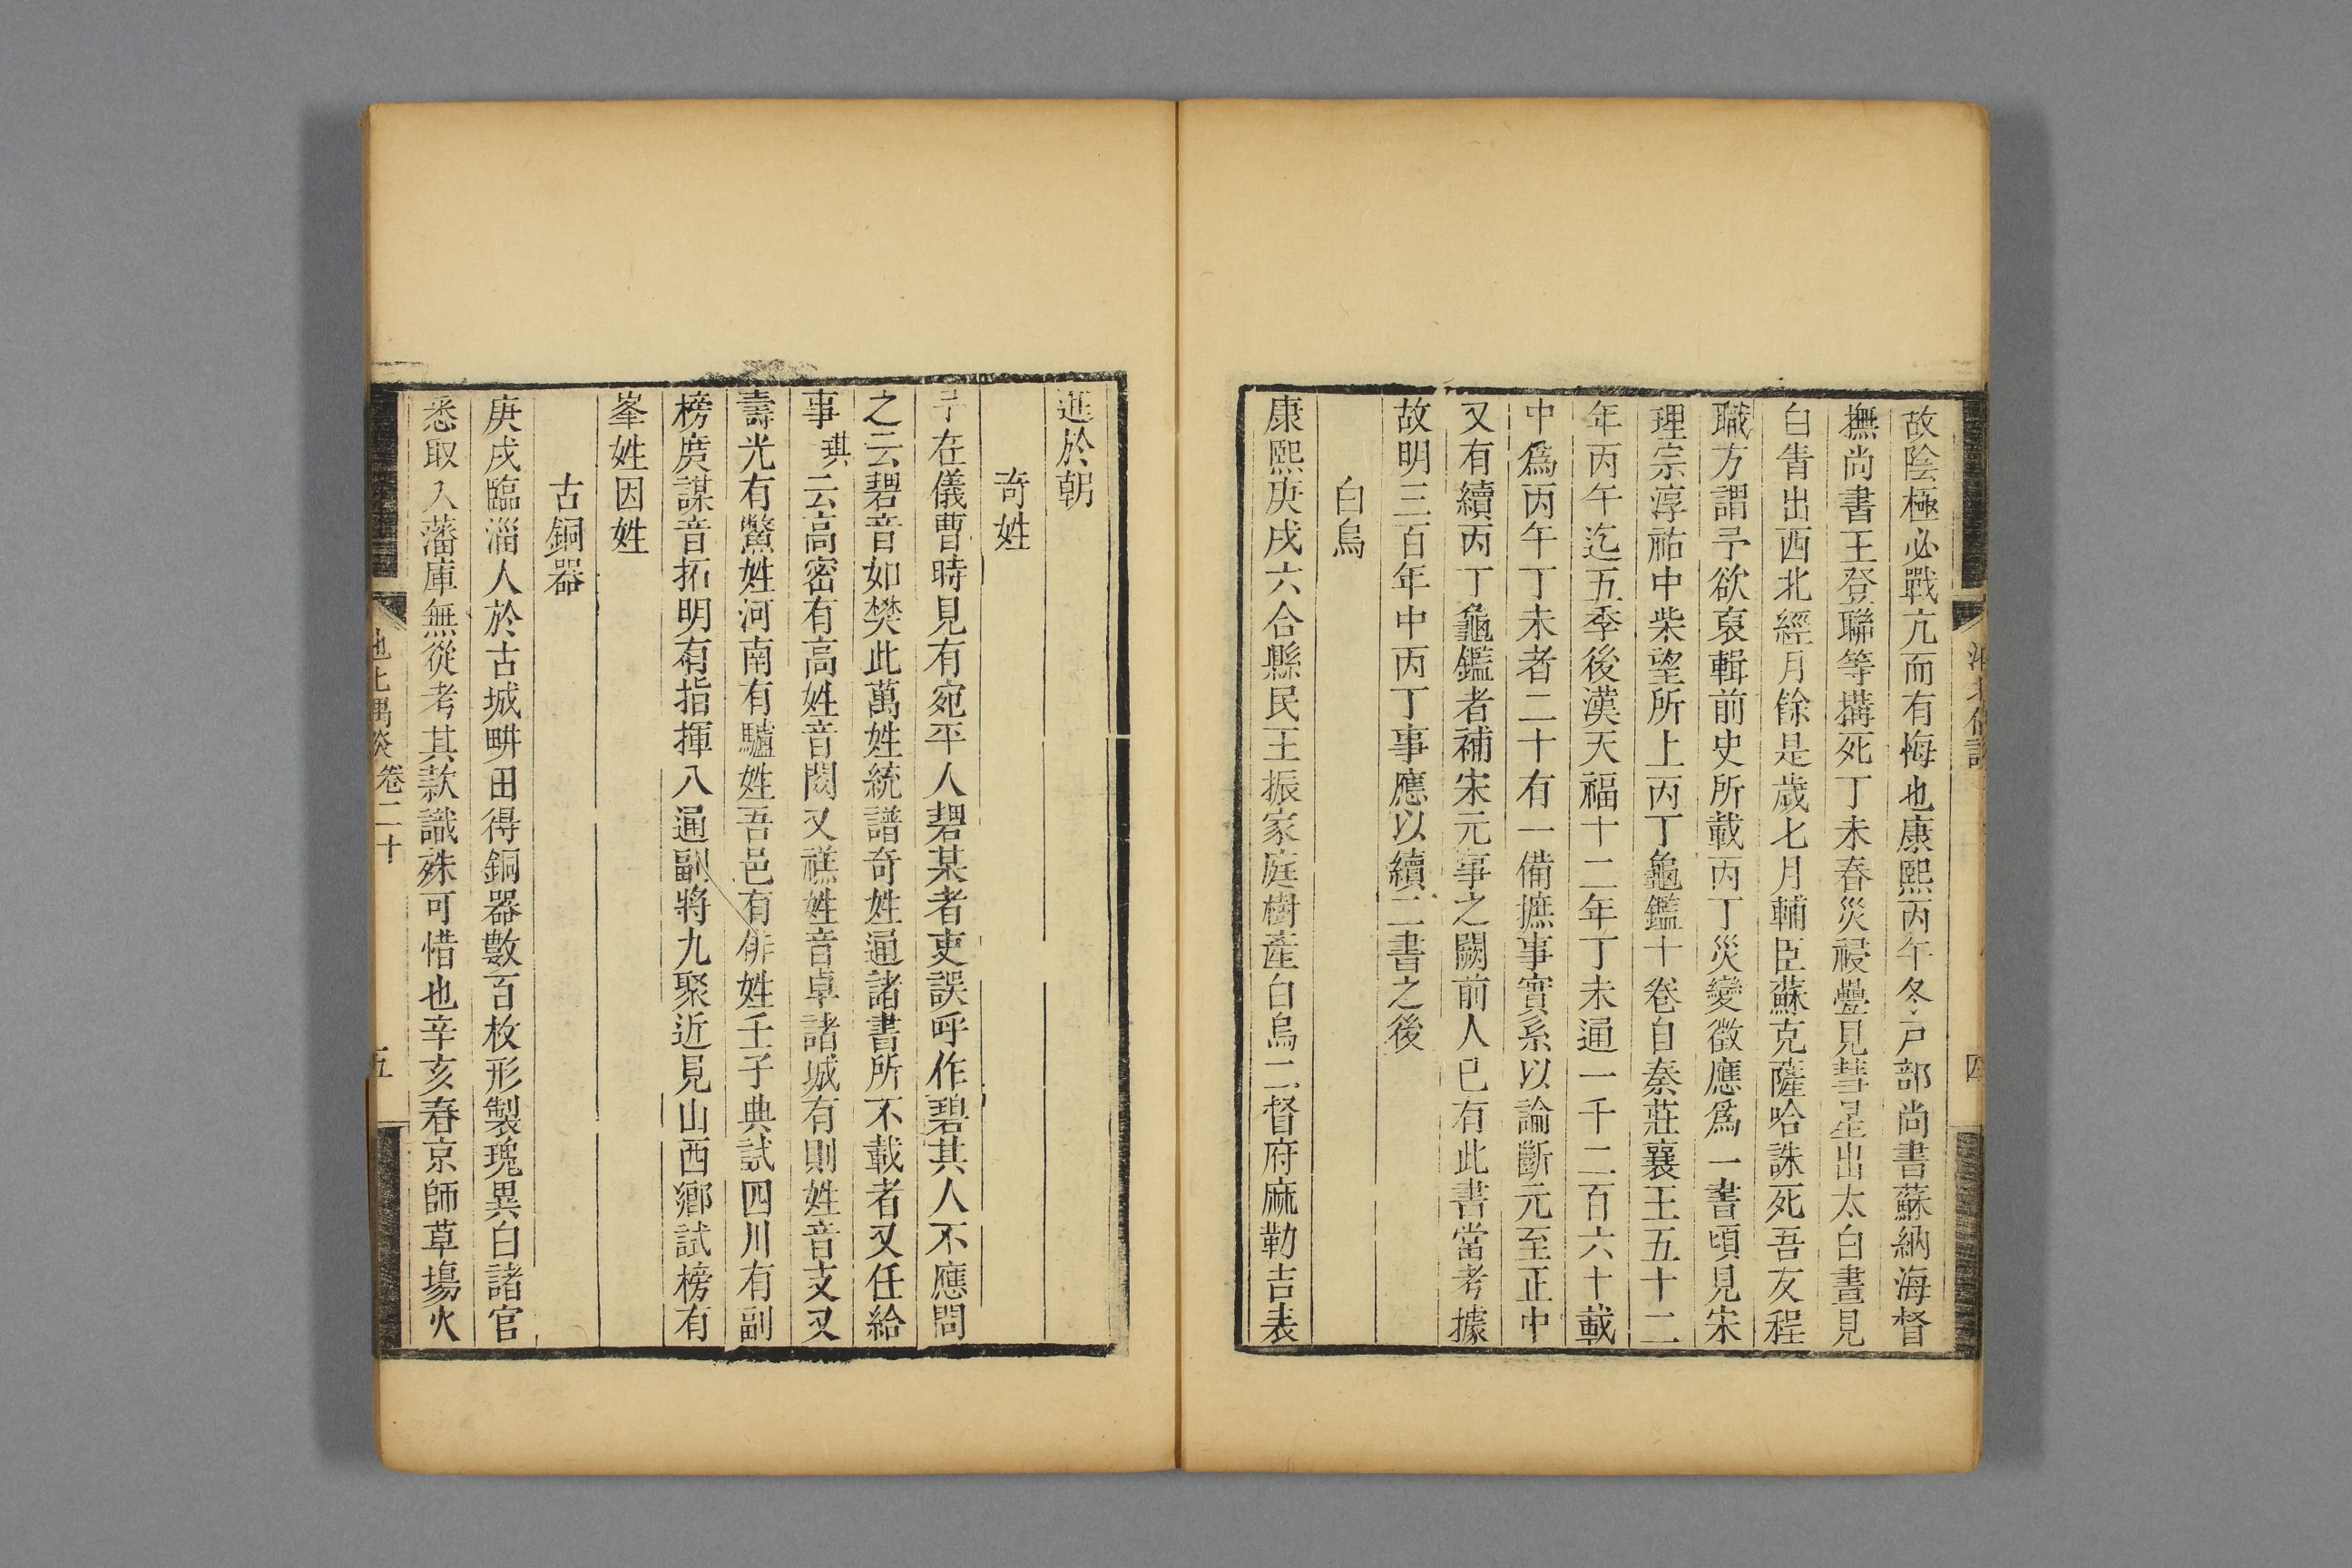 故陰極必戰亢而有悔也康熙丙午冬戸部尚書蘇納海督
撫尚書王登聯等搆死丁未春災祲疊見彗星出太白晝見
白眚出西北經月餘是歲七月輔臣蘇克薩哈誅死吾友程
職方謂予欲裒輯前史所載丙丁災變徵應爲一書頃見宋
理宗淳祐中柴望所上丙丁龜鑑十卷自秦莊襄王五十二
年丙午迄五季後漢天福十二年丁未通一千二百六十載
中爲丙午丁未者二十有一備摭事實系以論斷元至正中
又有續丙丁龜鑑者補宋元事之闕前人已有此書當考據
故明三百年中丙丁事應以續二書之後
白烏
康熙庚戌六合縣民王振家庭樹產白烏二督府麻勒吉表
進於朝
奇姓
予在儀曹時見有宛平人碧某者吏誤呼作碧其人不應問
之云碧音如樊此萬姓統譜奇姓通諸書所不載者又任給
事琪云高密有高姓音閡又禚姓音卓諸城有則姓音支又
壽光有鱉姓河南有驢姓吾邑有俳姓壬子典試四川有副
榜庹謀音拓明有指揮八通副將九聚近見山西鄉試榜有
峯姓因姓
古銅器
庚戌臨淄人於古城畊田得銅器數百枚形製瑰異白諸官
悉取入藩庫無從考其款識殊可惜也辛亥春京師草場火
池北偶談 卷二十 五